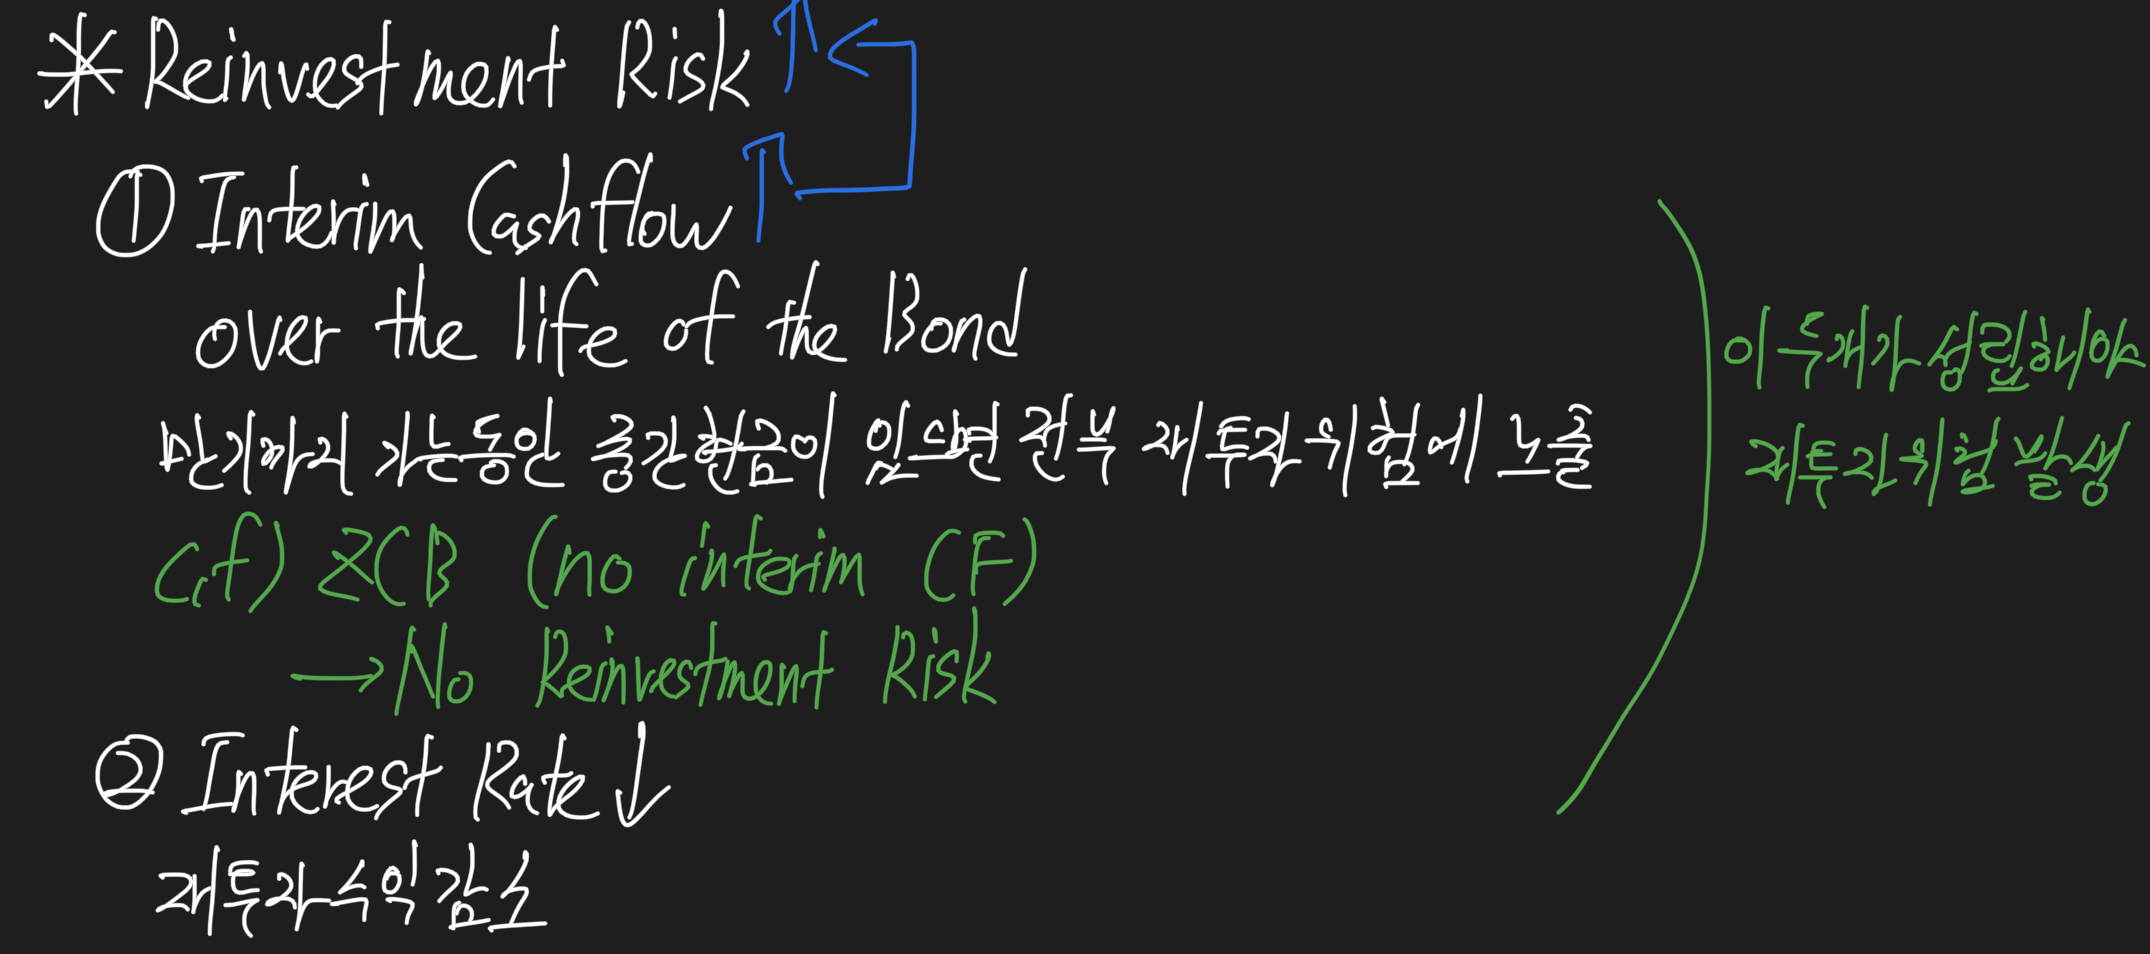 * Reinvestment Risk ↑
① Interim Cashflow ↑
over the life of the Bond
만기까지 가는동안 중간현금이 있으면 전부 재투자위험에 노출
c.f) ZCB (no interim CF)
→ No Reinvestment Risk
② Interest Rate ↓
재투자수익감소
이 두개가 성립해야
재투자위험 발생